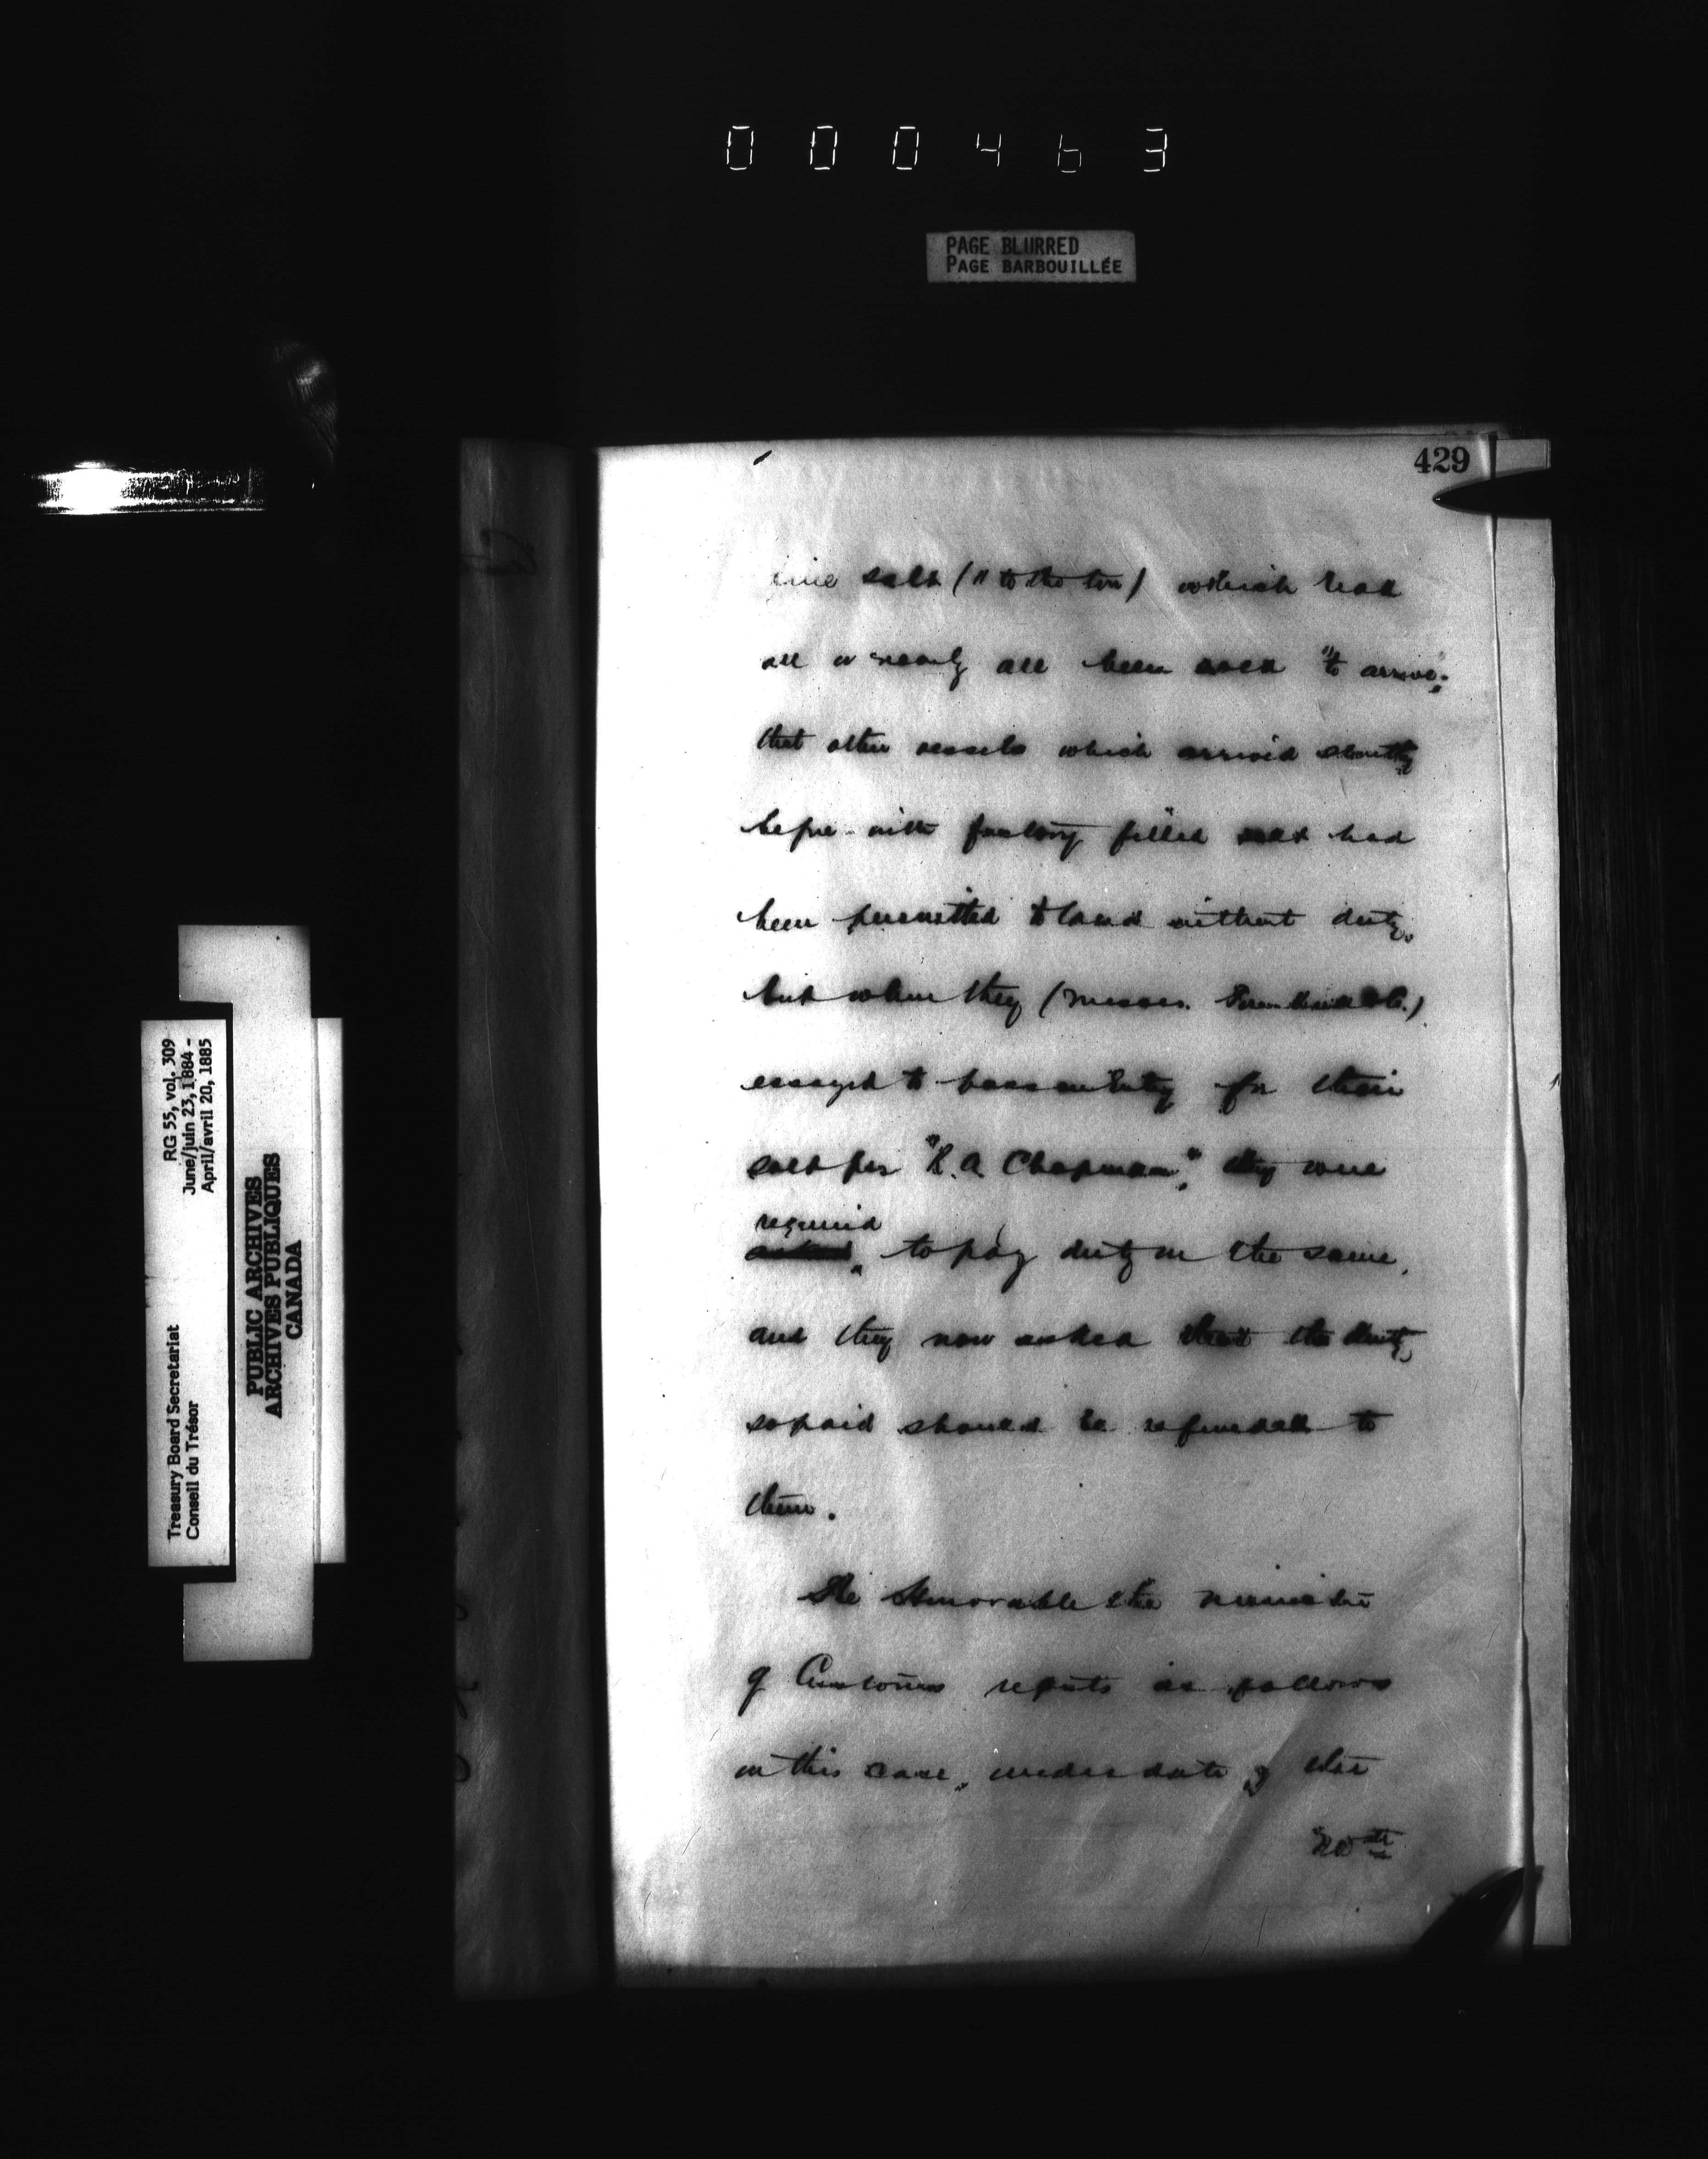 000463
PAGE BLURRED
PAGE BARBOUILLÉE
429
fine salt (11 to the ton) which had
all or nearly all been sold "to arrive",
that other vessels which arrived shortly
before with factory filled salt had
been permitted to land without duty,
but when they (Messrs. & Co.)
essayed to pass an Entry for their
salt per "R. A. Chapman", they were
required
asked to pay duty on the same,
and they now asked that the duty
so paid should be refunded to
them.
The Honorable the Minister
of Customs reports as follows
on this case, under date of the
20th
Treasury Board Secretariat
Conseil du Trésor
RG 55, vol. 309
June/juin 23, 1884 -
April/avril 20, 1885
PUBLIC ARCHIVES
ARCHIVES PUBLIQUES
CANADA